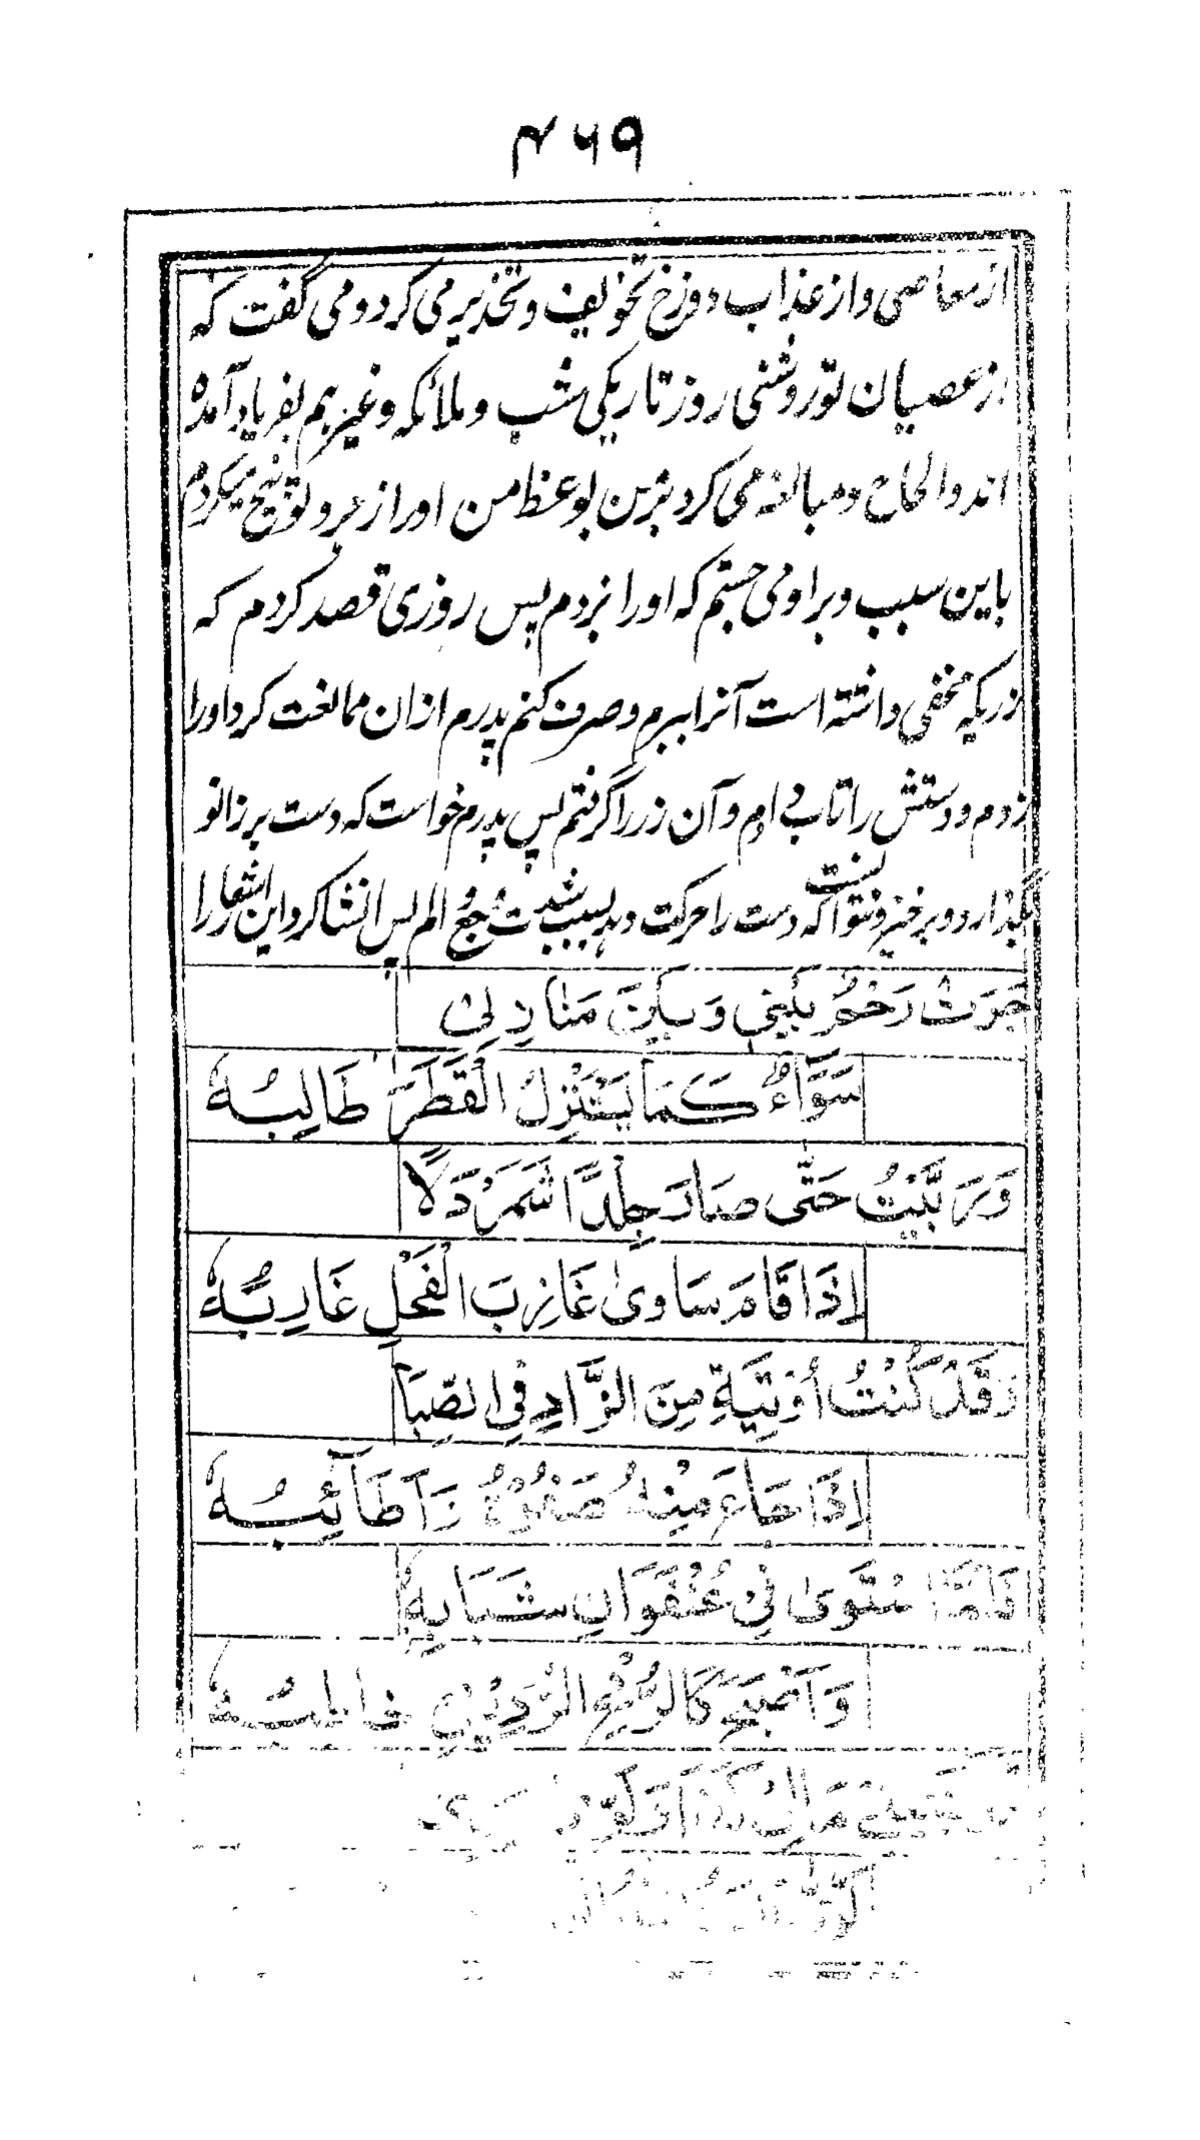 ۴۶۹
از معاصی و از عذاب دوزخ تخویف و تحذیر می کرد و می گفت که
از عصیان تو روشنی روز تاریکی شب و ملائکه و غیرہم بفریاد آمده
اند و الحاح و مبالغه می کرد بزین بوعظ من او را زجر و توبیخ میکردم
باین سبب و بر او می جستم که او را بزدم پس روزی قصد کردم که
زریکه مخفی داشته است آنرا ببرم و صرف کنم پدرم ازان ممانعت کرد او را
زدم و دستش را تاب دادم و آن زر را گرفتم پس پدرم خواست که دست بر زانو
بگذارد و برخیزد نتوانست که دست را حرکت دهد بسبب شدت وجع الم پس انشا کرد این اشعار را
جَرَتْ رَحِمٌ بَيْنِي وَبَيْنَ مَنَازِلٍ
سَوَّاءٌ كَمَا يَسْتَنْزِلُ الْقَطَرَ طَالِبُهُ
وَرَبَّيْتُ حَتَّى صَارَ جِلْدًا شَمَرْدَلًا
اِذَا قَامَ سَاوىٰ غَازِبَ الْفَحْلِ غَارِبُهُ
وَقَدْ كُنْتُ أُوتِيَةِ مِنَ الزَّادِ فِي الصِّبَا
اِذَا جَاءَ مِنْهُ صَفْوُهُ وَ اَطَائِبُهُ
فَلَمَّا اسْتَوىٰ فِي عُنْفُوَانِ شَبَابِهِ
وَاَصْبَحَ كَالرُّمْحِ الرُّدَيْنِيِّ
مَالِي كَذَا وَلَوٰى